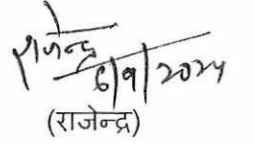 राजेन्द्र
6/9/2024
(राजेन्द्र)